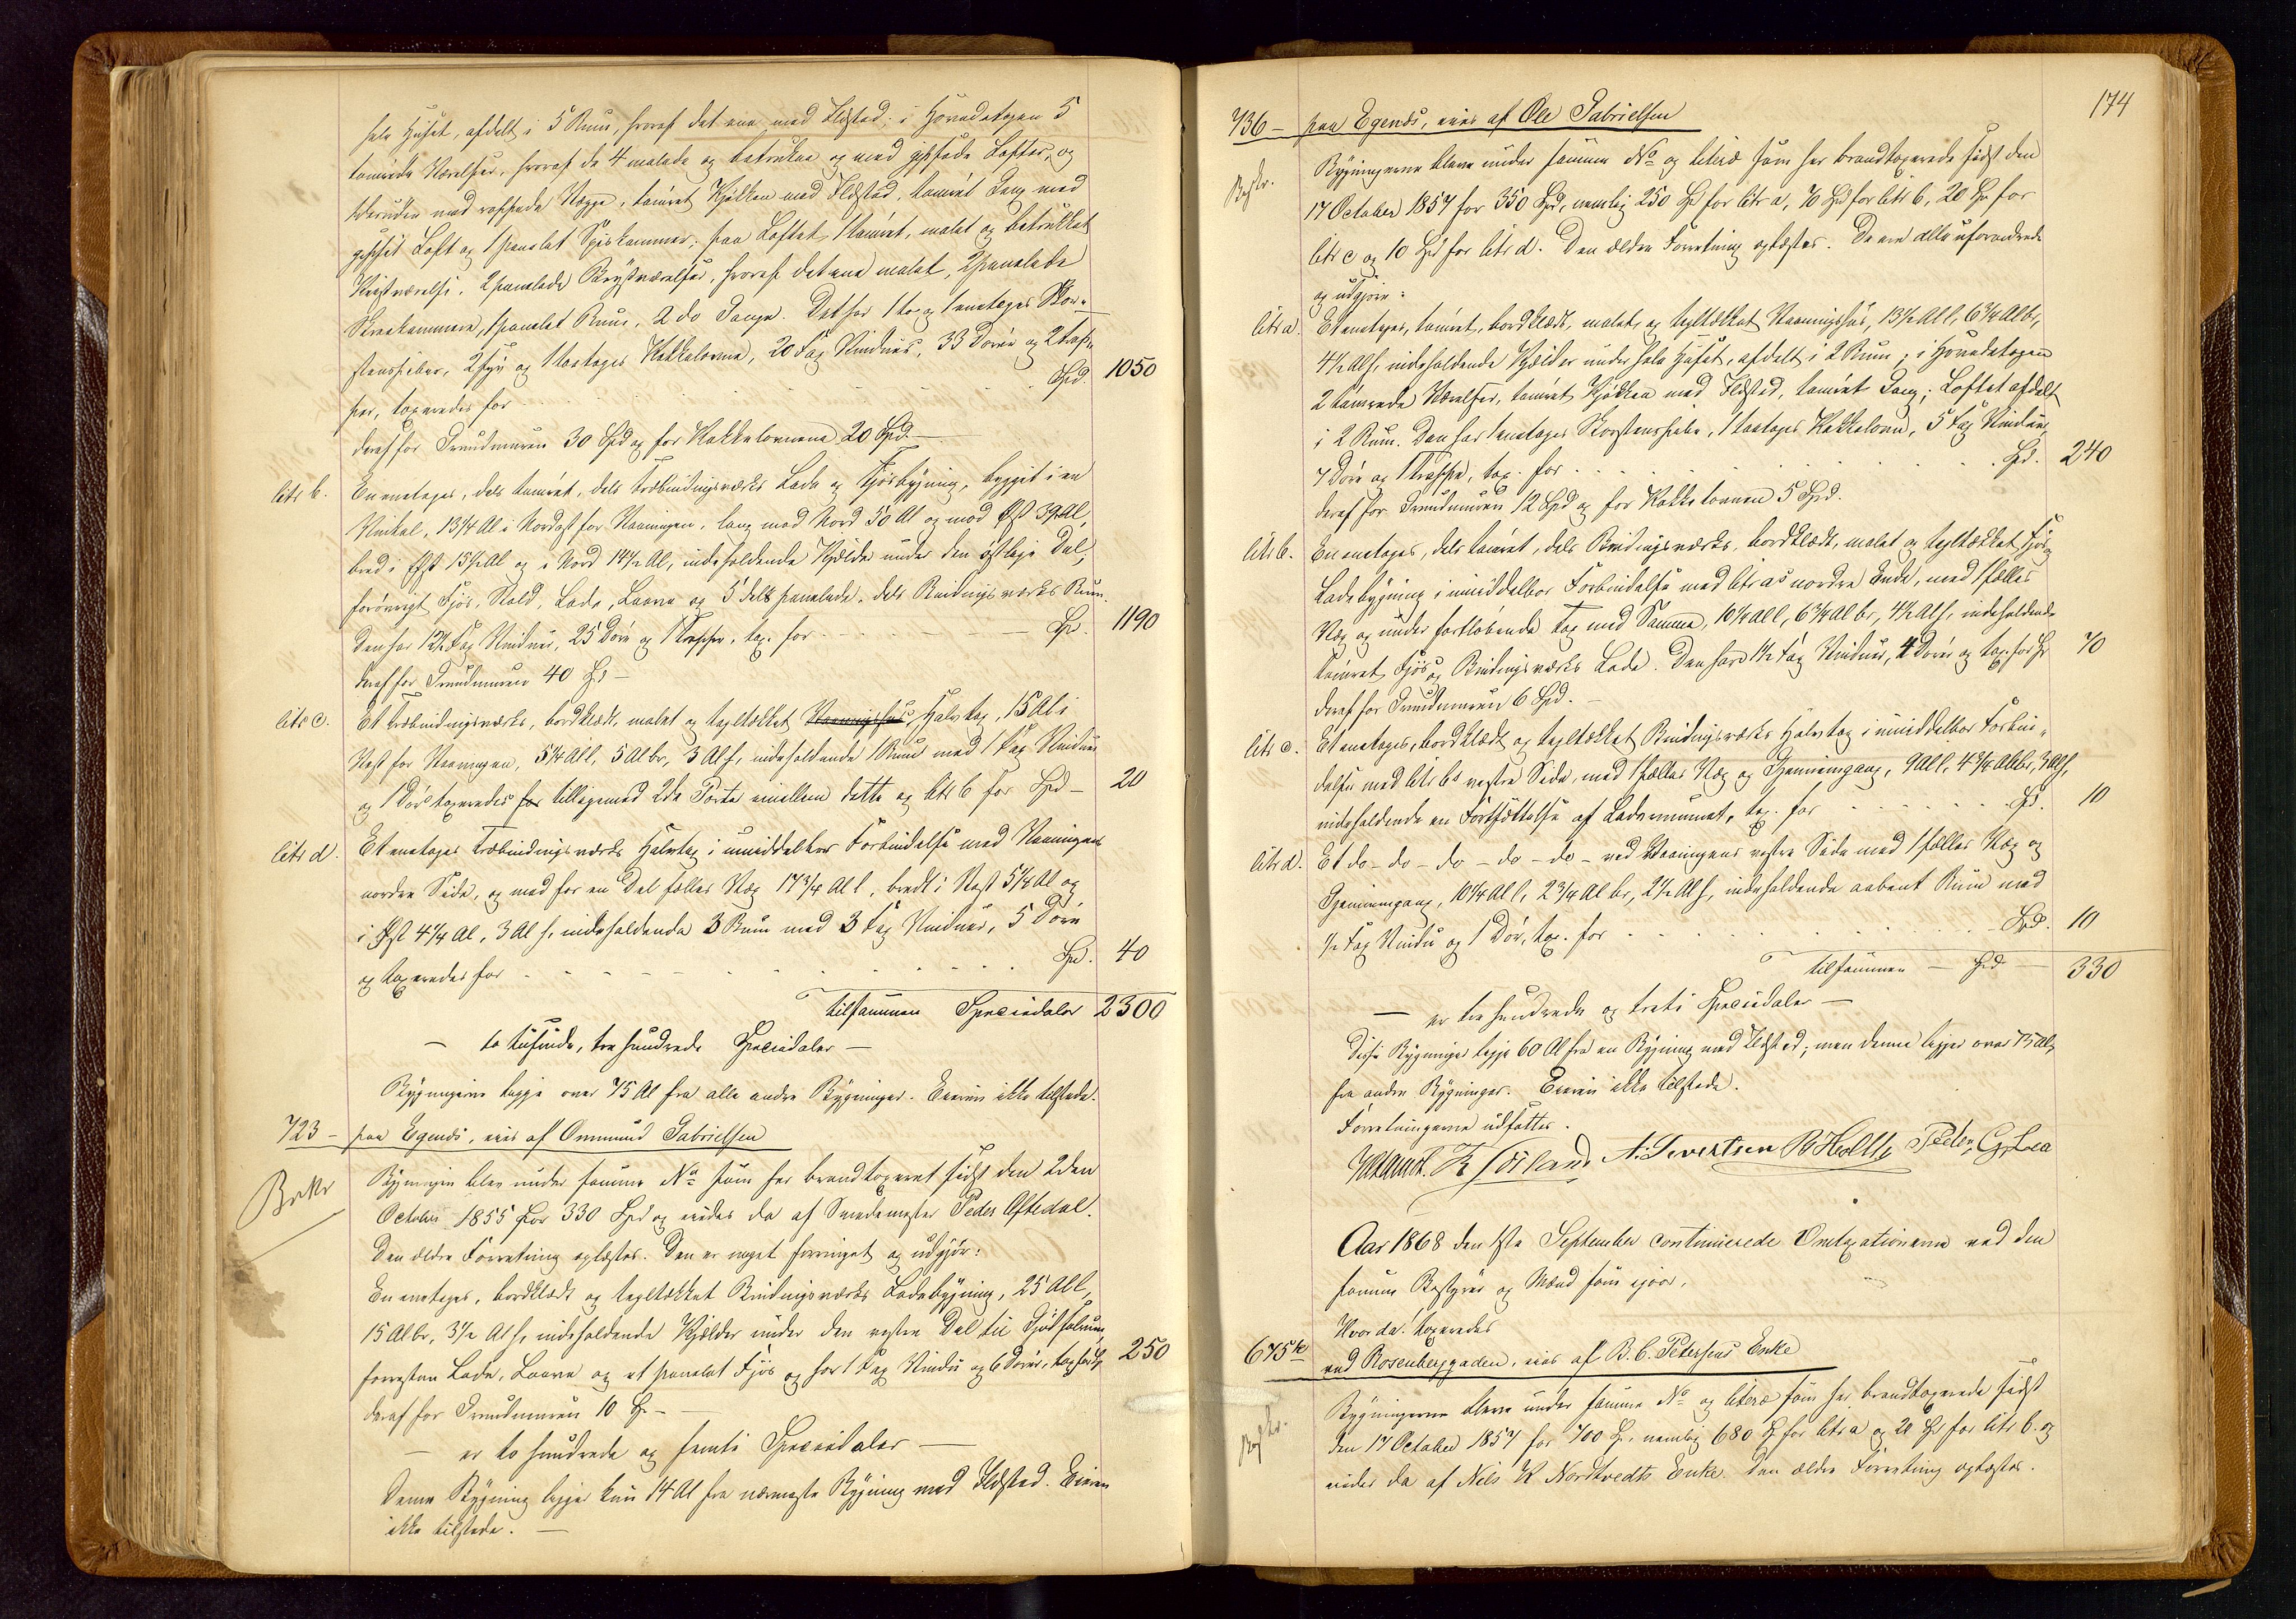 hele Huset, afdelt i 5 Rum, hvoraf det ene med Ildsted; i Hovedetagen 5
tømrede Værelser, hvoraf de 4 malede og betrukne og med gipsede Lofter, og
desuden med Vægge, tømret Kjøkken med Ildsted, tømret Gang med
gipset Loft og 1 panelet Spiskammer; paa Loftet 1 tømret, malet og betrukket
Kvistværelse, 2 panelede Kvistværelser, hvoraf det ene malet, 2 panelede
Kamere, 1 panelet Rum, 2 do Gange. Det har 1 to og 1 enetages Skor-
stenspiber, 2 og 1 toetages Kakkelovne, 20 Fag Vinduer, 33 Døre og 2 Trap-
per, taxeredes for Spd. 1050
deraf for Grundmuren 30 Spd og for Kakkelovnene 20 Spd. —
litr b. En enetages, dels tømret, dels Træbindingsværks Lade og Fjøsbygning, bygget i en
Vinkel, 13 1/4 Al i Nordost for Vaaningen, lang mod Nord 50 Al og mod Øst 39 Al,
bred i Øst 15 1/2 Al og i Nord 14 1/2 Al, indeholdende Kjælder under den østlige Del,
forøvrigt Fjøs, Stald, Lade, Laave og 5 dels panelede, dels Bindingsværks Rum.
Den har 12 1/2 Fag Vinduer, 25 Døre og 1 Trappe, tax. for Sp. 1190
deraf for Grundmuren 40 Sp —
litr c. Et Træbindingsværks, bordklædt, malet og tegltækket Vaaningshus Halvtag, 15 Al i
Vest for Vaaningen, 5 1/4 Al l, 5 Al br, 3 Al h, indeholdende 1 Rum med 1 Fag Vindue
og 1 Dør taxeredes for tilligemed 2de Porte imellem dette og litr b for Spd — 20
litr d. Et enetages Træbindingsværks Halvtag i umiddelbar Forbindelse med Vaaningens
nordre Side, og med for en Del fælles Væg 17 3/4 Al l, bredt i Vest 5 1/4 Al og
i Øst 4 1/4 Al, 3 Al h, indeholdende 3 Rum med 3 Fag Vinduer, 5 Døre
og taxeredes for Sp. 40
tilsammen Speciedaler 2300
— to tusinde, tre hundrede Speciedaler —
Bygningerne ligge over 75 Al fra alle andre Bygninger. Eieren ikke tilstede.
723 — paa Egenæs, eies af Ommund Gabrielsen
Bygningen blev under samme No som her brandtaxeret sidst den 2den
October 1855 for 330 Spd og eiedes da af Smedemester Peder Aftedal.
Den ældre Forretning oplæstes. Den er noget forringet og udgjør:
En enetages, bordklædt og tegltækket Bindingsværks Ladebygning, 25 Al l,
15 Al br, 3 1/2 Al h, indeholdende Kjælder under den vestre Del til Gjødselrum,
forresten Lade, Laave og et panelet Fjøs og har 1 Fag Vindue og 6 Døre, tax for Sp 250
deraf for Grundmuren 10 Sp —
— er to hundrede og femti Speciedaler —
Denne Bygning ligger kun 14 Al fra nærmeste Bygning med Ildsted. Eieren
ikke tilstede. —
174
736 — paa Egenæs, eies af Ole Gabrielsen
Bygningerne bleve under samme No og literæ som her brandtaxerede sidst den
17 October 1857 for 350 Spd, nemlig 250 Sp for litr a, 70 Sp for litr b, 20 Sp for
litr c og 10 Spd for litr d. Den ældre Forretning oplæstes. De ere alle uforandrede
og udgjøre:
litr a. Et enetages, tømret, bordklædt, malet og tegltækket Vaaningshus, 13 1/2 Al l, 6 3/4 Al br,
4 1/2 Al h, indeholdende Kjælder under hele Huset, afdelt i 2 Rum; i Hovedetagen
2 tømrede Værelser, tømret Kjøkken med Ildsted, tømret Gang; Loftet afdelt
i 2 Rum. Den har 1 enetages Skorstenspibe, 1 toetages Kakkelovn, 5 Fag Vinduer,
7 Døre og 1 Trappe, tax. for Spd. 240
deraf for Grundmuren 12 Spd og for Kakkelovnen 5 Spd.
litr b. En enetages, dels tømret, dels Bindingsværks, bordklædt, malet og tegltækket Fjøs og
Ladebygning i umiddelbar Forbindelse med litr a's nordre Ende, med 1 fælles
Væg og under fortløbende Tag med Samme, 10 1/4 Al l, 6 3/4 Al br, 4 1/2 Al h, indeholdende
tømret Fjøs og Bindingsværks Lade. Den har 1 1/2 Fag Vinduer, 4 Døre og tax. for Sp 70
deraf for Grundmuren 6 Spd. —
litr c. Et enetages, bordklædt og tegltækket Bindingsværks Halvtag i umiddelbar Forbin-
delse med litr b's vestre Side, med 1 fælles Væg og Gjennemgang, 9 Al l, 4 3/4 Al br, 3 Al h,
indeholdende en Fortsættelse af Laderummet, tax. for Sp. 10
litr d. Et do — do — do — do — do — ved Vaaningens vestre Side med 1 fælles Væg og
Gjennemgang, 10 1/4 Al l, 2 3/4 Al br, 2 1/2 Al h, indeholdende aabent Rum med
1/2 Fag Vindue og 1 Dør, tax. for Spd. 10
tilsammen — Spd — 330
— er tre hundrede og treti Speciedaler —
Disse Bygninger ligge 60 Al fra en Bygning med Ildsted; men denne ligger over 75 Al
fra andre Bygninger. Eieren ikke tilstede.
Forretningerne udsattes.
A. Sivertsen B Holtz Peder G. Lea
Aar 1868 den 1ste September continuerede Omtaxationerne ved den
samme Bestyrer og Mænd som igaar.
Hvor da taxeredes
675 ved Rosenberggaden, eies af B. C. Petersens Enke
Bygningerne bleve under samme No og literæ som her brandtaxerede sidst
den 17 October 1857 for 700 Sp, nemlig 680 Sp for litr a og 20 Sp for litr b. og
eiedes da af Nels K Nordtvedts Enke. Den ældre Forretning oplæstes.